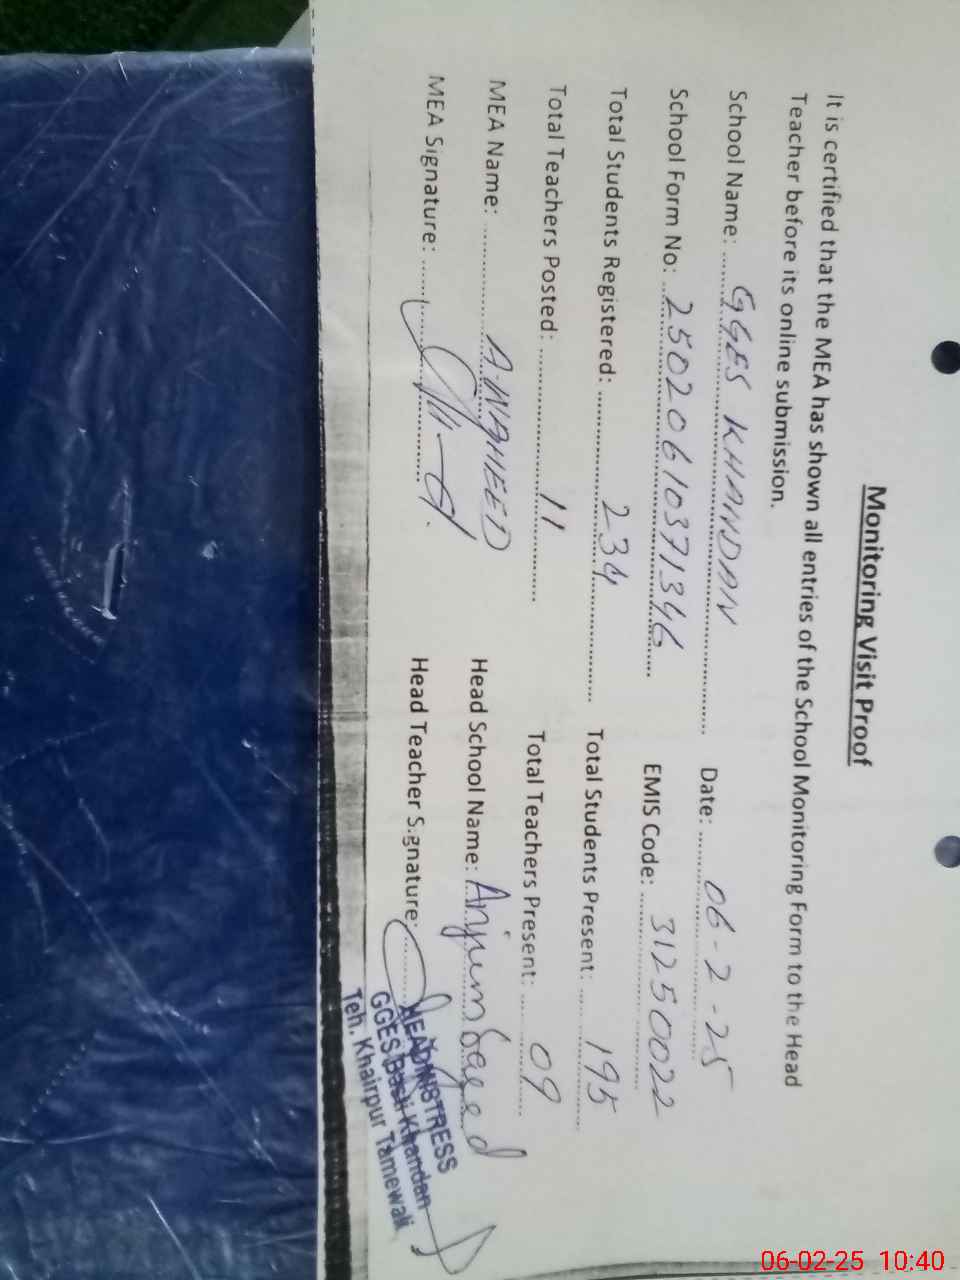 Monitoring Visit Proof
It is certified that the MEA has shown all entries of the School Monitoring Form to the Head
Teacher before its online submission.
School Name: GGES KHANDAN Date: 06-2-25
School Form No: 25020610371346 EMIS Code: 31250022
Total Students Registered: 234 Total Students Present: 195
Total Teachers Posted: 11 Total Teachers Present: 09
MEA Name: A.WAHEED Head School Name: Anjum Saeed
MEA Signature: Head Teacher S.gnature:
HEADMISTRESS
GGES Basti Khandan
Teh. Khairpur Tamewali
06-02-25 10:40